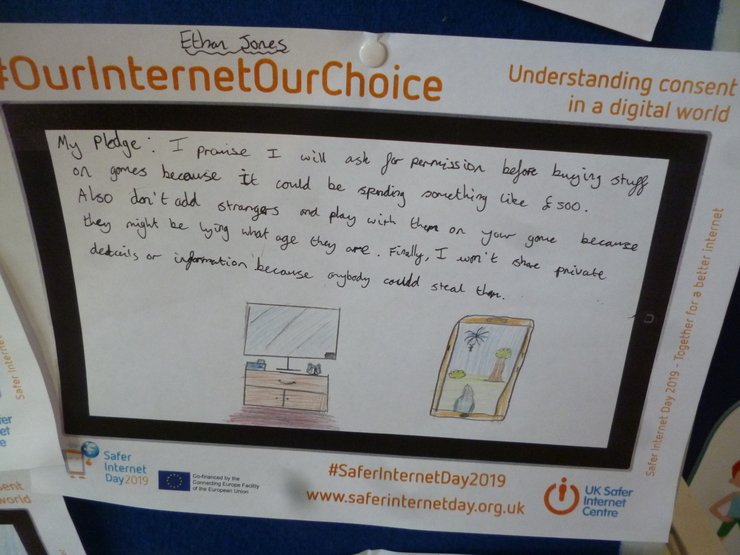 Ethan Jones
#OurInternetOurChoice
Understanding consent
in a digital world
My Pledge: I promise I will ask for permission before buying stuff
on games because it could be spending something like £500.
Also don't add strangers and play with them on your game because
they might be lying what age they are. Finally, I won't share private
details or information because anybody could steal them.
Safer Internet Day 2019 - Together for a better internet
Safer
Internet
Day2019
Co-financed by the
Connecting Europe Facility
of the European Union
#SaferInternetDay2019
www.saferinternetday.org.uk
UK Safer
Internet
Centre
Safer Internet